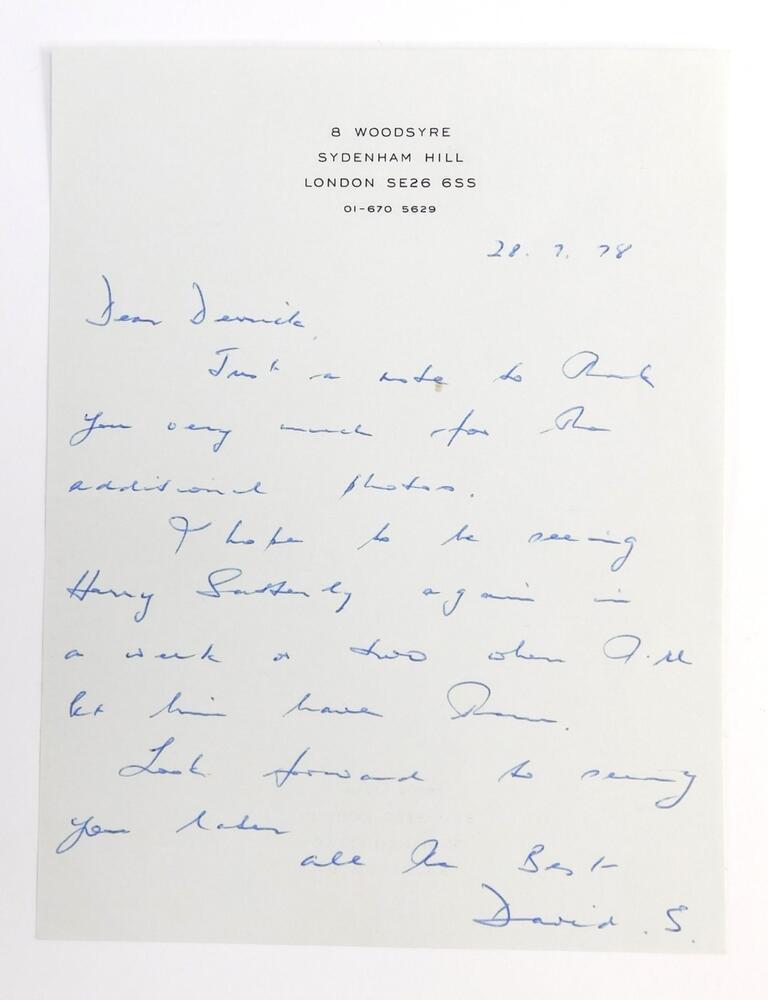 8 WOODSYRE
SYDENHAM HILL
LONDON SE26 6SS
01-670 5629
28. 7. 78
Dear Derrick,
Just a note to thank
you very much for the
additional photos.
I hope to be seeing
Harry again in
a week or two when I'll
let him have them.
Look forward to seeing
you later
all the Best
David. S.